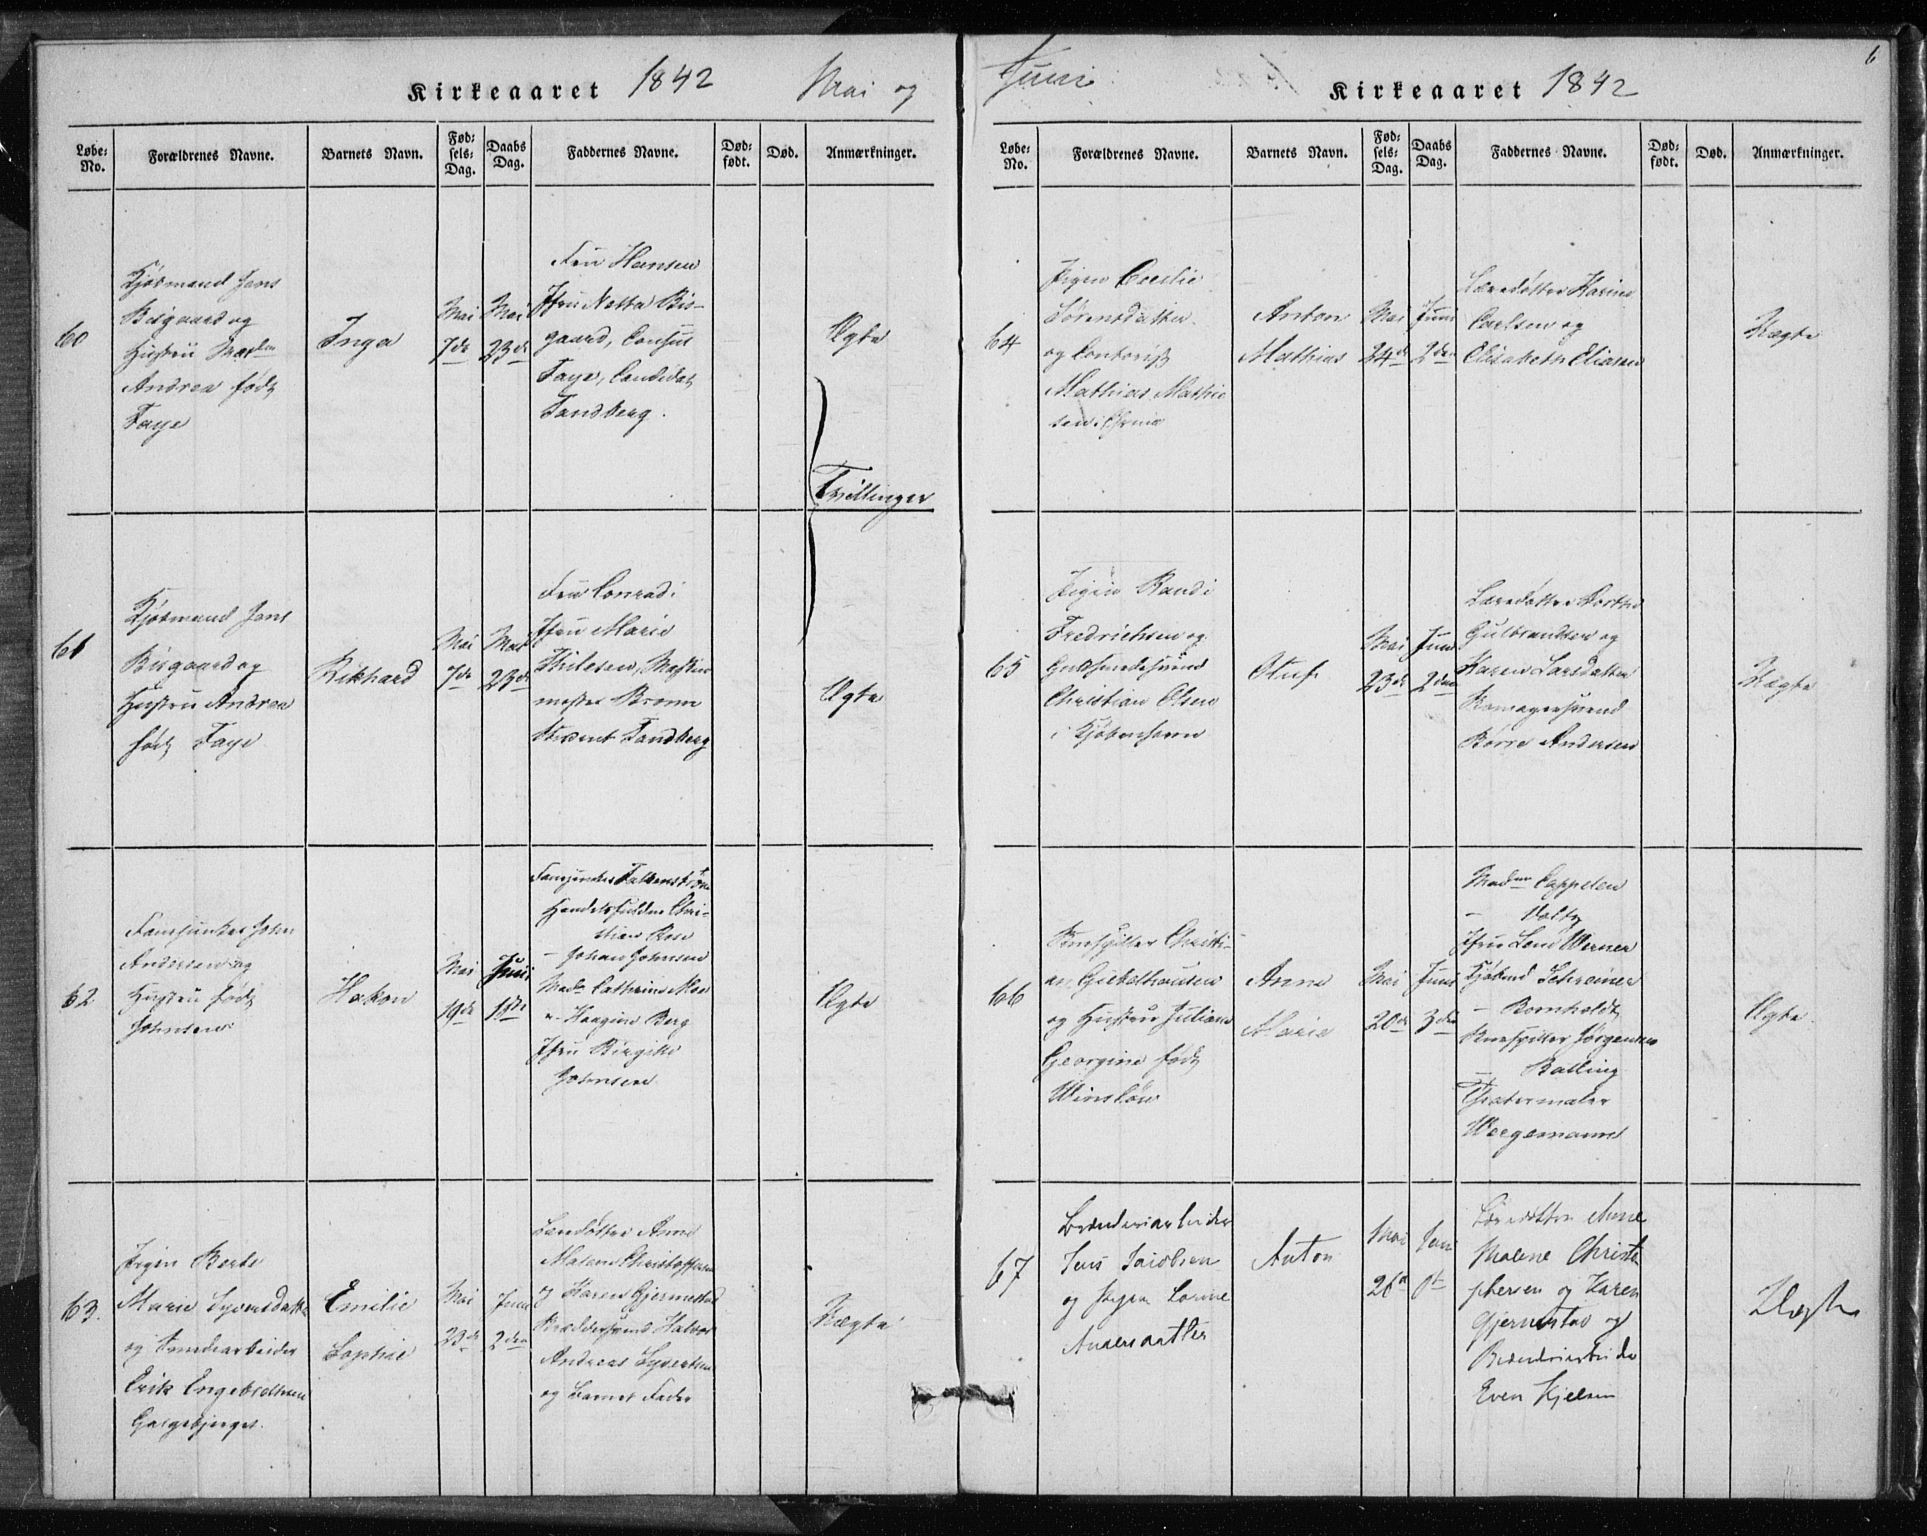 Kirkeaaret 1842 Mai og
Løbe-No. Forældrenes Navne. Barnets Navn. Fødsels-Dag. Daabs Dag. Faddernes Navne. Dødfødt. Død. Anmærkninger.
60
Kjøbmand Jens
Bisgaard og
Hustru
Andrea født
Faye
Inga
Mai
7de
Mai
23de
Fru Hansen
Jfru Netta Bis-
gaard, Consul
Faye, Candidat
Tandberg.
Ægte
Tvillinger
61
Kjøbmand Jens
Bisgaard og
Hustru Andrea
født Faye
Rikhard
Mai
7de
Mai
23de
Fru Conradi
Jfru Marie
Thilesen,
mester
Student Tandberg
Ægte
62
John
Andersen og
Hustru født
Johnsen
Hakon
Mai
19de
Juni
1ste
Johan Johnsen
Madm Cathrine Moe
Berg
Jfru Birgitte
Johnsen
Ægte
63.
Pigen Berte
Marie Syversdatter
og
Erik Engebretsen
Emilie
Sophie
Mai
23de
Juni
2den
Anne
Malene Christoffersen
og Karen Gjermestad
Halvor
Andreas Syvertsen
og Barnets Fader
Uægte
Juni Kirkeaaret 1842
6
Løbe-No. Forældrenes Navne. Barnets Navn. Fødsels-Dag. Daabs Dag. Faddernes Navne. Dødfødt. Død. Anmærkninger.
64
Pigen Cecilie
Sørensdatter
og Contorist
Mathias Mathie
sen
Anton
Mathias
Mai
24de
Juni
2den
Karine
Carlsen og
Elisabeth Eliasen
Uægte
65
Pigen Randi
Fredrichsen og
Guldsmedsvend
Christian Olsen
i Kjøbenhavn
Oluf
Mai
23de
Juni
2den
Dorthe
Gulbrandsen og
Karen Larsdatter
Børre Andersen
Uægte
66
Skuespiller Christi-
an Giebelhausen
og Hustru Juliane
Georgine født
Winsløw
Anne
Marie
Mai
20de
Juni
3die
Madme Cappelen
Jfru Werner
Kjøbmd Schreiner
– Bornholdt
Skuespiller Jørgensen
– Balling
Theatermaler
Wergemann
Ægte
67
Brænderiarbeider
Jens Jacobsen
og Pigen Lovine
Andersdatter
Anton
Mai
26de
Juni
Anne
Malene Christo
phersen og Karen
Gjermestad og
Brænderiarbeider
Even Kjelsen
Uægte